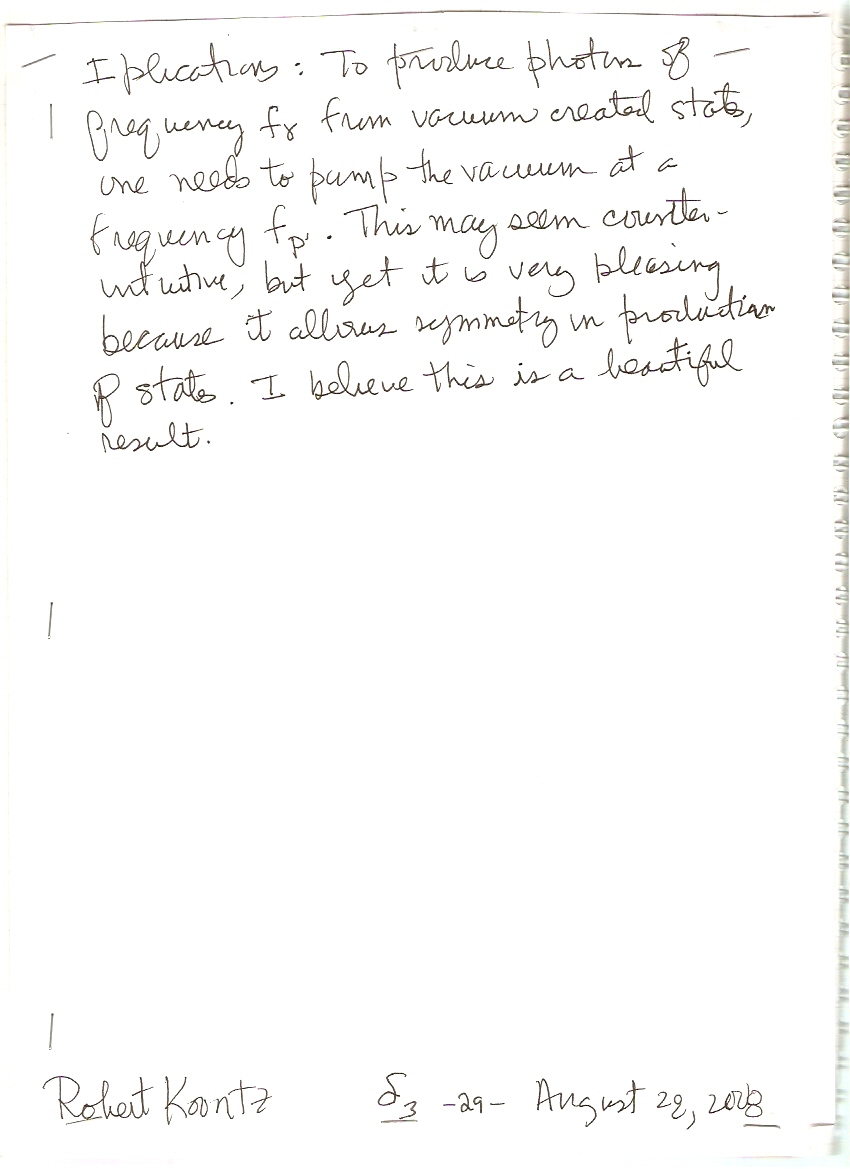 Iplications: To produce photons of —
frequency fγ from vacuum created states,
one needs to pump the vacuum at a
frequency fp. This may seem counter-
intuitive, but yet it is very pleasing
because it allows symmetry in production
of states. I believe this is a beautiful
result.
Robert Koontz δ3 -29- August 28, 2008